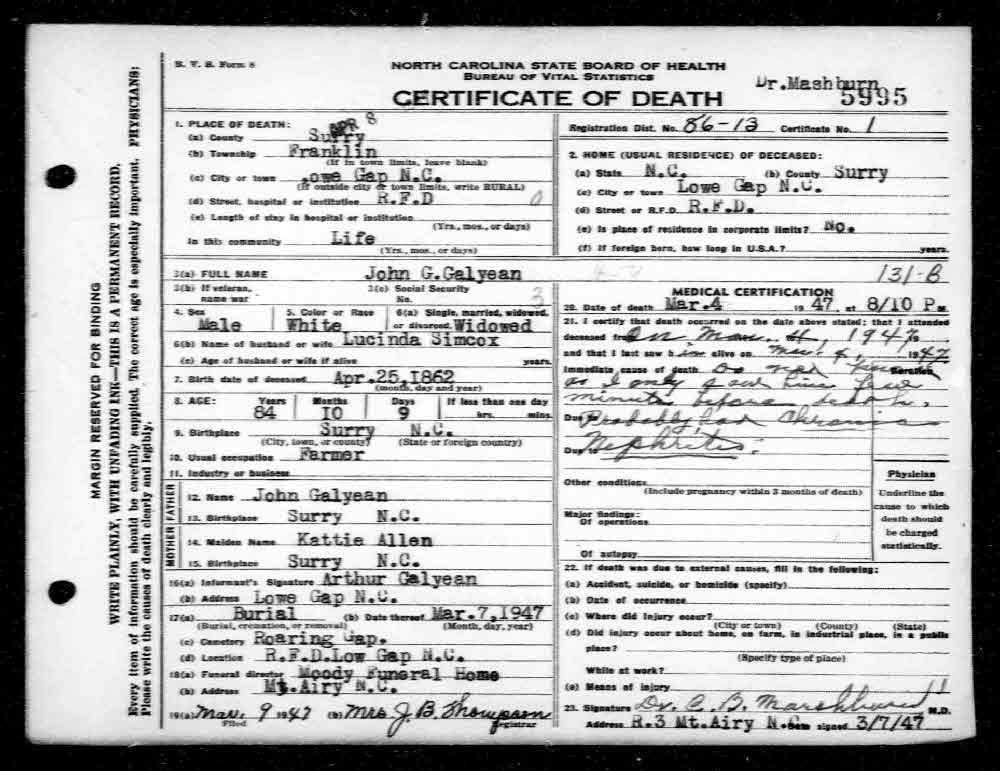 S. V. S. Form 8
NORTH CAROLINA STATE BOARD OF HEALTH
BUREAU OF VITAL STATISTICS
CERTIFICATE OF DEATH
Dr.Mashburn
5995
MARGIN RESERVED FOR BINDING
WRITE PLAINLY, WITH UNFADING INK—THIS IS A PERMANENT RECORD.
Every item of information should be carefully supplied. The correct age is especially important. PHYSICIANS:
Please write the causes of death clearly and legibly.
1. PLACE OF DEATH: APR 8
(a) County Surry
(b) Township Franklin
(If in town limits, leave blank)
(c) City or town Lowe Gap N.C.
(If outside city or town limits, write RURAL)
(d) Street, hospital or institution R.F.D 0
(e) Length of stay in hospital or institution
(Yrs., mos., or days)
In this community Life
(Yrs., mos., or days)
Registration Dist. No. 86-13 Certificate No. 1
2. HOME (USUAL RESIDENCE) OF DECEASED:
(a) State N.C. (b) County Surry
(c) City or town Lowe Gap N.C.
(d) Street or R.F.D. R.F.D.
(e) Is place of residence in corporate limits? No.
(f) If foreign born, how long in U.S.A.? years.
3(a) FULL NAME John G.Galyean 131-B
3(b) If veteran, name war
3(c) Social Security No. 3
4. Sex Male
5. Color or Race White
6(a) Single, married, widowed, or divorced. Widowed
6(b) Name of husband or wife Lucinda Simcox
(c) Age of husband or wife if alive years.
7. Birth date of deceased Apr.25,1862
(month, day and year)
8. AGE: Years Months Days If less than one day
84 10 9 hrs. mins.
9. Birthplace Surry N.C.
(City, town, or county) (State or foreign country)
10. Usual occupation Farmer
11. Industry or business
FATHER
12. Name John Galyean
13. Birthplace Surry N.C.
MOTHER
14. Maiden Name Kattie Allen
15. Birthplace Surry N.C.
16(a) Informant's Signature Arthur Galyean
(b) Address Lowe Gap N.C.
17(a) Burial (b) Date thereof Mar.7,1947
(Burial, cremation, or removal) (Month, day, year)
(c) Cemetery Roaring Gap.
(d) Location R.F.D.Low Gap N.C.
18(a) Funeral director Moody Funeral Home
(b) Address Mt.Airy N.C.
19(a) Mar. 9 1947 (b) Mrs J B Thompson
Filed Registrar
MEDICAL CERTIFICATION
20. Date of death Mar.4 1947 at 8/10 P.m
21. I certify that death occurred on the date above stated; that I attended
deceased from On Mar. 4, 1947
and that I last saw him alive on Mar. 4, 1947
Immediate cause of death Do not Duration
as I only saw him few
minutes before death.
Due to Probably had Chronic
Due to Nephritis.
Other conditions
(Include pregnancy within 3 months of death)
Major findings:
Of operations
Of autopsy
Physician
Underline the
cause to which
death should
be charged
statistically.
22. If death was due to external causes, fill in the following:
(a) Accident, suicide, or homicide (specify)
(b) Date of occurrence
(c) Where did injury occur?
(City or town) (County) (State)
(d) Did injury occur about home, on farm, in industrial place, in a public
place?
(Specify type of place)
While at work?
(e) Means of injury
23. Signature Dr. C. B. Marshburn M.D.
Address R.3 Mt.Airy N.C. Date signed 3/7/47